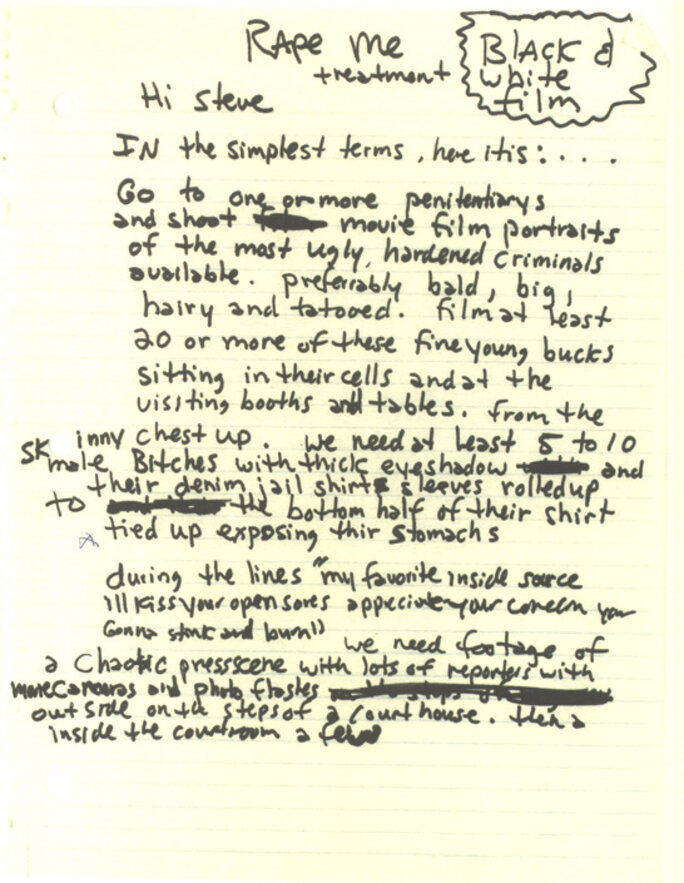 RApe me
treatment
Black &
white
film
Hi Steve
IN the simplest terms, here it is: . . . .
Go to one or more penitentiarys
and shoot movie film portraits
of the most ugly, hardened criminals
available. preferrably bald, big,
hairy and tatooed. film at least
20 or more of these fine young bucks
sitting in their cells and at the
visiting booths and tables. from the
chest up. we need at least 5 to 10
skinny male Bitches with thick eyeshadow and
their denim jail shirts sleeves rolled up
to the bottom half of their shirt
tied up exposing thir stomachs
during the lines "my favorite inside source
ill kiss your open sores appreciate your concern you
Gonna stink and burn"
we need footage of
a Chaotic press scene with lots of reporters with
movie cameras and photo flashes
out side on the steps of a court house. then a
inside the courtroom a few